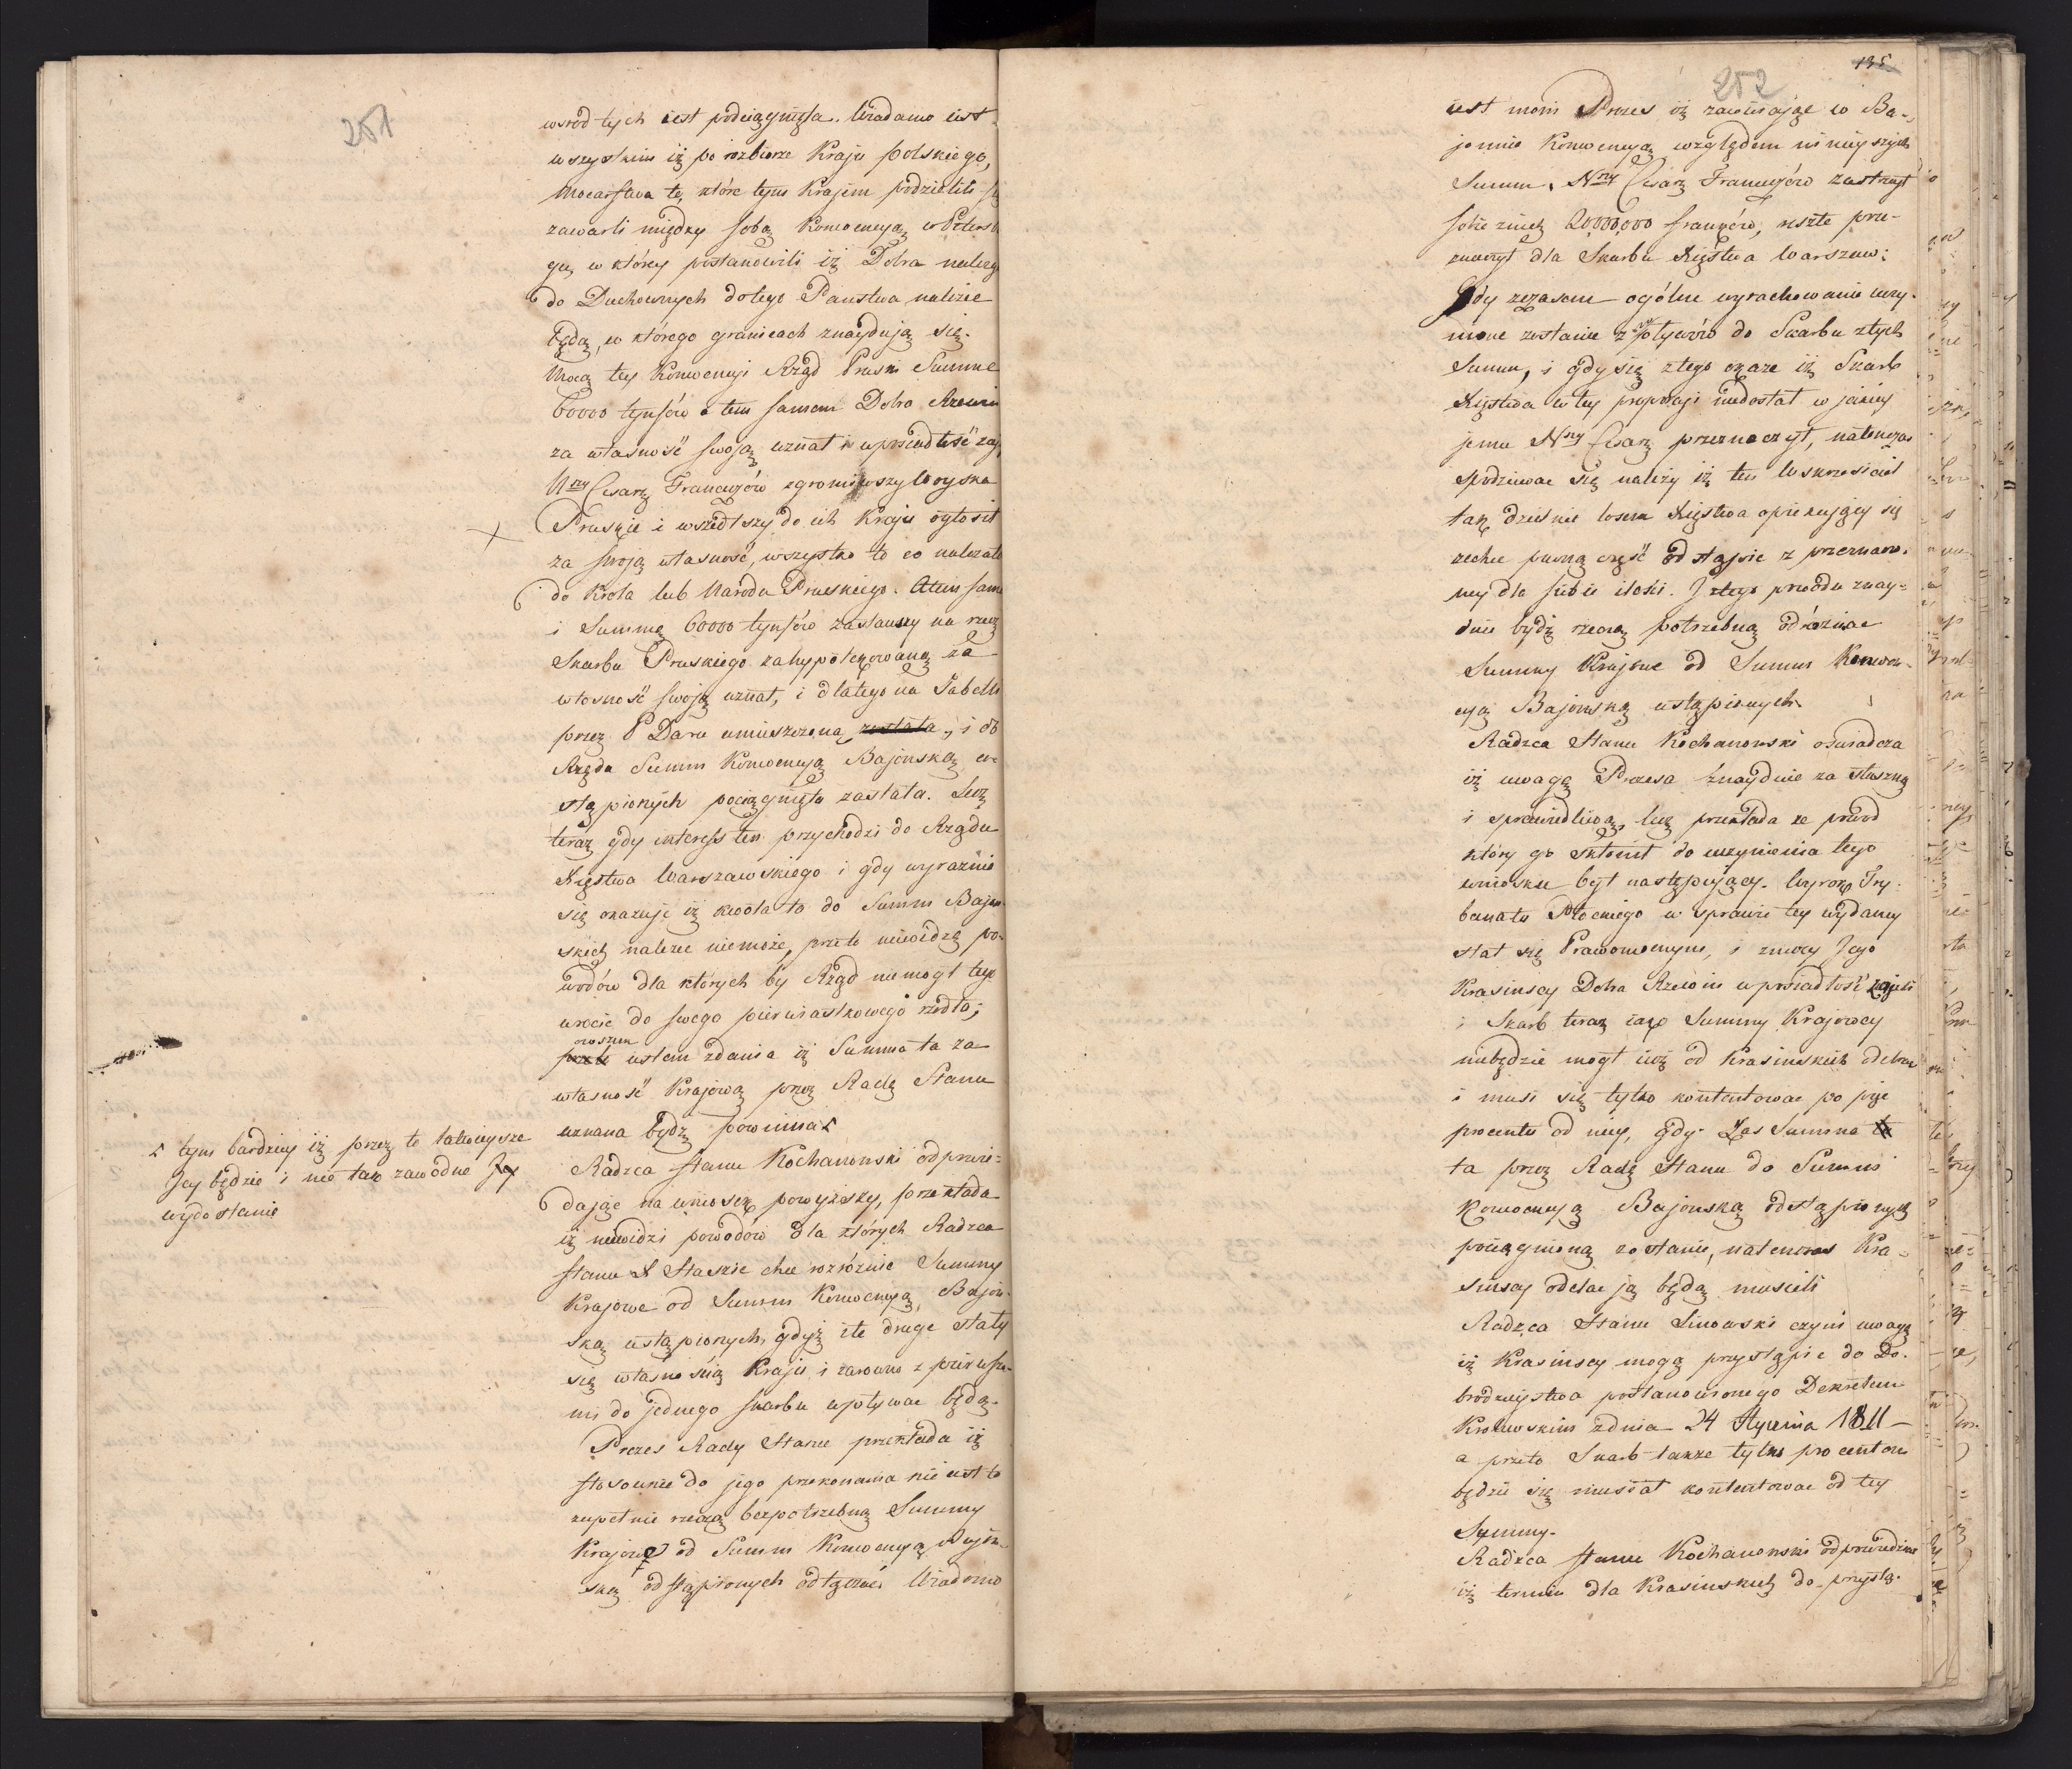 251
wsrod tych iest podciągnięta. Wiadamo iest
wszystkim iż po rozbiorze Kraju polskiego,
Mocarstwa te, które tym Krajem podzieliły się
zawarli między sobą Konwencyą w Petersb
gu, w którey postanowili iż Dobra należą
do Duchownych do tego Panstwa należeć
będą, w którego granicach znayduią się.
Mocą tey Konwencyi Rząd Pruski Summę
60000 tynfów a tem samem Dobra Rzewin
za własność swoją uznał i w posiadłość zaj
Nayy Cesarz Francuzów zgromiwszy Woyska
Pruskie i wszedłszy do ich Kraju ogłosił
za swoją własność, wszystko to co należało
do Króla lub Narodu Pruskiego. A tem samem
i Summę 60000 tynfów zastawny na rzecz
Skarbu Pruskiego zahypotekowaną za
własność swoją uznał, i dlatego na Tabelli
przez P Daru umieszczona zostala, i do
Rzędu Summ Konwencyą Bajońską u-
stąpionych pociągnięta zastała. Lecz
teraz gdy interess ten przychodzi do Rządu
Xięstwa Warszawskiego i gdy wyraźnie
się okazuje iż kwota ta do Summ Bajon-
skich należeć niemoże, przeto niewidzę po-
wodów dla których by Rząd niemogł tego
wrócić do swego pierwiastkowego rzodła;
owszem
przeto iestem zdania iż Summa ta za
własność Krajową przez Radę Stanu
uznana bydź powinna
tym bardziey iż przez to łatwieysze
Jey będzie i nie tak zawodne Jey
wydostanie
Radzca stanu Kochanowski odpowie-
dając na wniosek powyższy, przekłada
iż niewidzi powodów dla których Radzca
stanu X Staszic chce rozróżnić Summy
Krajowe od Summ Konwencyą Bajon-
ską ustąpionych, gdyż i te drugie stały
się własnością Kraju i zarówno z pierwsze-
mi do jednego skarbu wpływać będą.
Prezes Rady Stanu przekłada iż
stosownie do jego przekonania nie iest to
zupełnie rzeczą bezpotrzebną Summy
Krajowe od Summ Konwencyą Bajon-
ską odstąpionych odłączać Wiadomo
135
252
iest mówi Prezes iż zawierając w Ba-
jonnie Konwencyą względem ninieyszych
Summ, Nayy Cesarz Francuzów zastrzegł
sobie znich 20,000,000 franków, resztę prze-
znaczył dla Skarbu Xięstwa Warszaw:
Gdy zczasem ogólne wyrachowanie uczy-
nione zostanie z wpływów do Skarbu ztych
Summ, i gdy się ztego okaże iż Skarb
Xięstwa w tey proporcyi niedostał w jakiey
jemu Nayy Cesarz przeznaczył, natenczas
spodziewać się należy iż ten Wskrzesiciel
tak dzielnie losem Xięstwa opiekujący się
zechce pewną część odstąpić z przeznaczo-
ney dla siebie ilości. I ztego powodu znay-
duie bydź rzeczą potrzebną odróżniać
Summy Krajowe od Summ Konwen-
cyą Bajonską ustąpionych.
Radzca Stanu Kochanowski oświadcza
iż uwagę Prezesa znayduie za słuszną
i sprawiedliwą, lecz przekłada że powód
który go skłonił do uczynienia tego
wniosku był następujący. Wyrok Try-
bunału Płockiego w sprawie tey wydany
stał się Prawomocnym, i zmocy Jego
Krasinscy Dobra Rzewin w posiadłość zajeli
i Skarb teraz iako Summy Krajowey
niebędzie mógł iuż od Krasinskich odebrać
i musi się tylko kontentować po pięć
procentu od niey, gdy Zas Summa
ta przez Radę Stanu do Summ
Konwencyą Bajonską odstąpionych
pociągnioną zostanie, natenczas Kra-
sinscy oddać ją będą musieli
Radzca Stanu Linowski czyni uwagę
iż Krasinscy mogą przystąpić do Do-
brodzieystwa postanowionego Dekretem
Krolewskim z dnia 24 Stycznia 1811 -
a przeto Skarb także tylko procentem
będzie się musiał kontentować od tey
Summy.
Radzca stanu Kochanowski odpowiedział
iż termin dla Krasinskich do przystą-